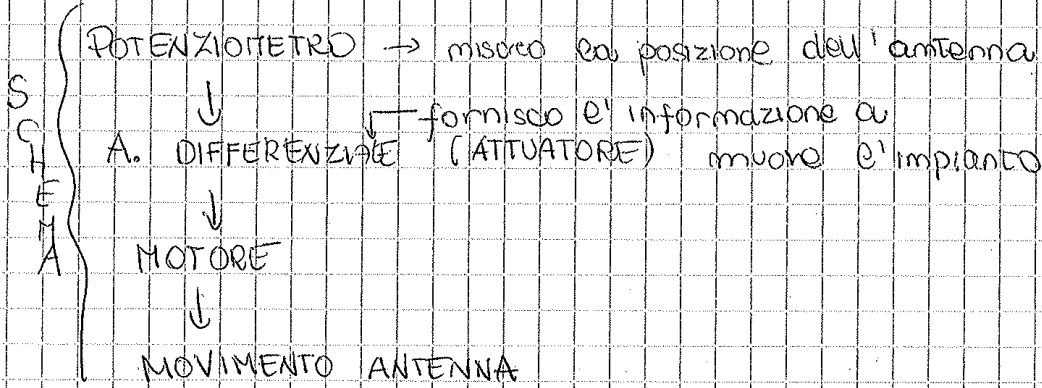 SCHEMA
POTENZIOMETRO → misuro la posizione dell'antenna
↓
fornisco l'informazione a
A. DIFFERENZIALE (ATTUATORE) muove l'impianto
↓
MOTORE
↓
MOVIMENTO ANTENNA